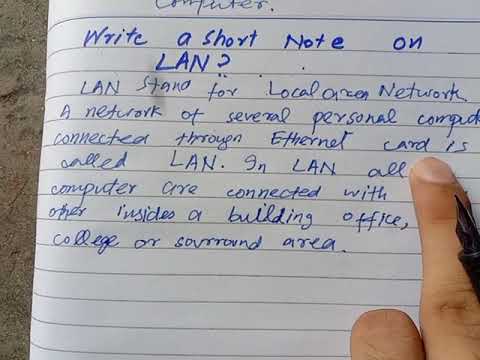 computer.
Write a short Note on
LAN?
LAN stand for Local area Network
A network of several personal comput
connected through Ethernet card is
called LAN. In LAN all
computer are connected with
other insides a building office,
college or sourround area.